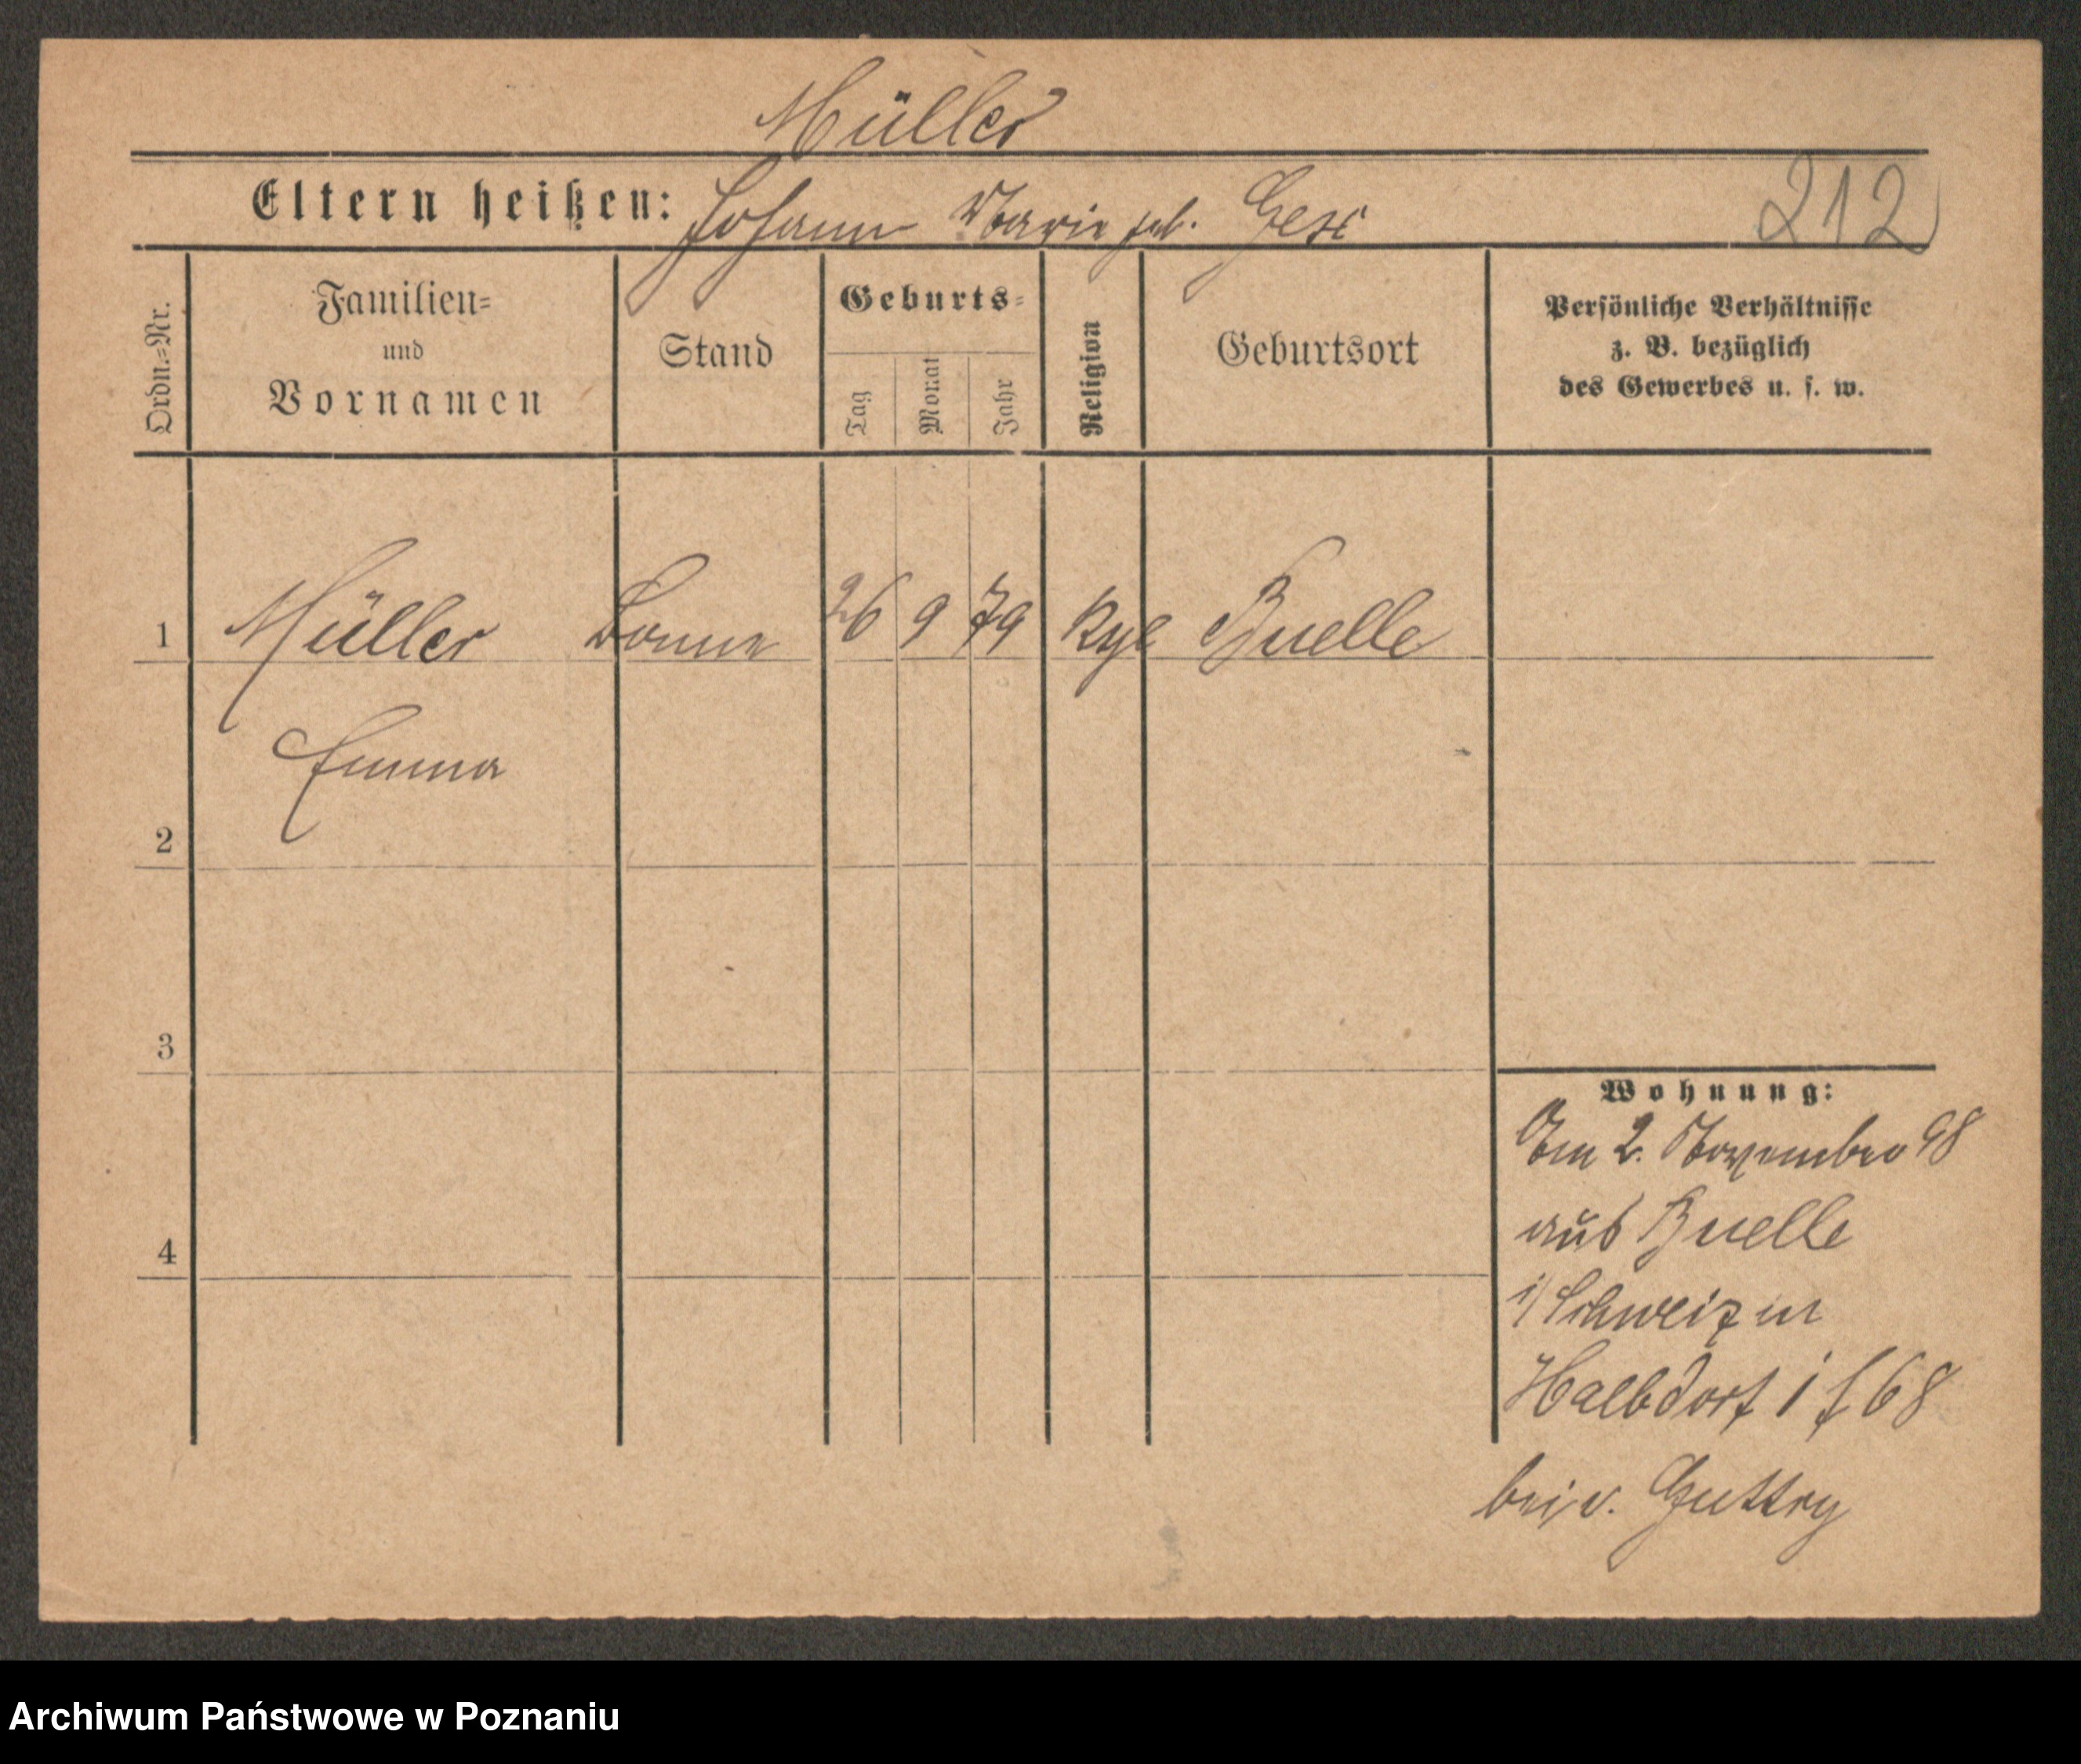 Müller
Eltern heißen: Johann Marie geb. Gex
212
Ordn.=Nr.
Familien=
und
Vornamen
Stand
Geburts=
Tag
Monat
Jahr
Religion
Geburtsort
Persönliche Verhältnisse
z. B. bezüglich
des Gewerbes u. s. w.
1 Müller Bonne 26 9 79 Buelle
Emma
2
3
4
Wohnung:
Am 2. November 98
aus Buelle
i/ Schweiz in
Halbdorf 1 f 68
bei v. Guttry
Archiwum Państwowe w Poznaniu